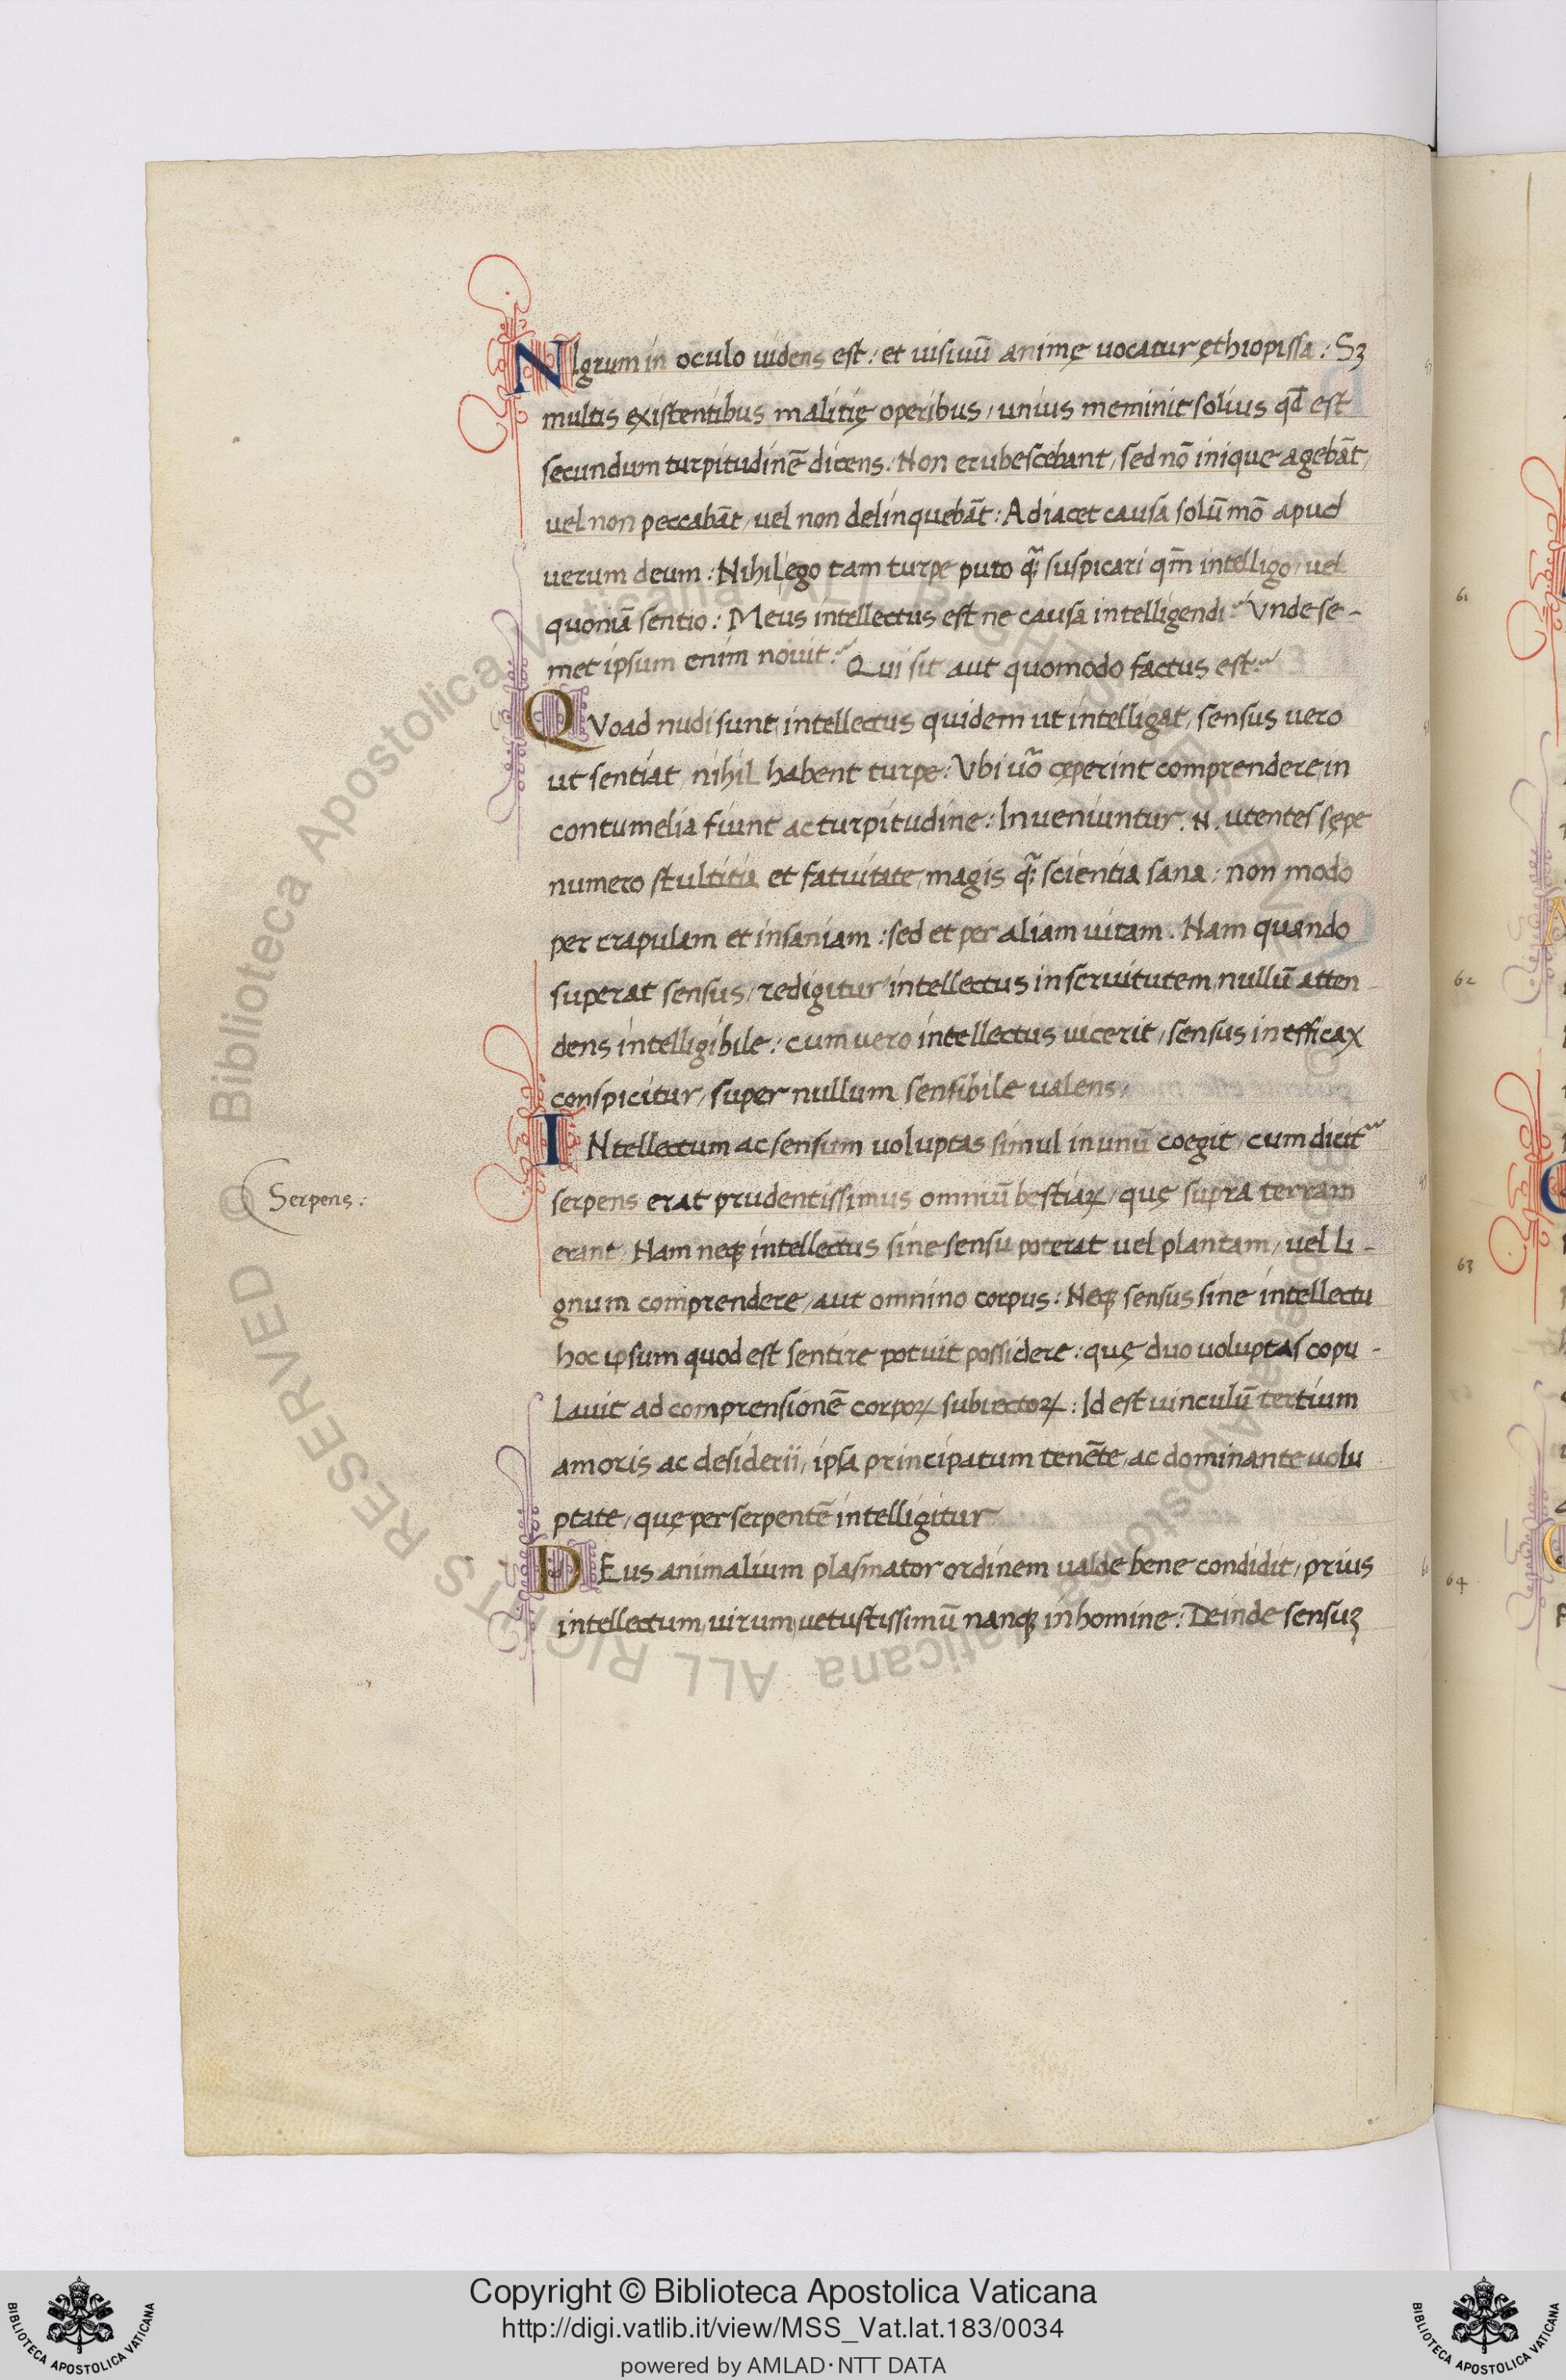 NIgrum in oculo uidens est: et uisiuū animę uocatur ęthiopissa: Sȝ
multis existentibus malitię operibus, unius meminit solius qđ est
secundum turpitudinē dicens: Non erubescebant, sed nō inique agebāt,
uel non peccabāt, uel non delinquebāt: Adiacet causa solū mō apud
uerum deum: Nihil ego tam turpe puto q̃ꝫ suspicari qm̄ intelligo, uel
quoniā sentio: Meus intellectus est ne causa intelligendi? Vnde se-
met ipsum enim nouit? Qui sit aut quomodo factus est?
QVoad nudi sunt, intellectus quidem ut intelligat, sensus uero
ut sentiat, nihil habent turpe: Vbi uõ cęperint comprendere, in
contumelia fiunt ac turpitudine: Inueniuntur .N. utentes sępe
numero stultitia et fatuitate, magis q̃ꝫ scientia sana: non modo
per crapulam et insaniam: sed et per aliam uitam. Nam quando
superat sensus, redigitur intellectus in seruitutem, nullū atten-
dens intelligibile: cum uero intellectus uicerit, sensus inefficax
conspicitur, super nullum sensibile ualens,
INtellectum ac sensum uoluptas simul in unū coegit, cum dicit~
Serpens:
serpens erat prudentissimus omniū bestiaꝝ, quę supra terram
erant. Nam neqꝫ intellectus sine sensu poterat uel plantam, uel li-
gnum comprendere, aut omnino corpus: Neqꝫ sensus sine intellectu
hoc ipsum quod est sentire potuit possidere: quę duo uoluptas copu-
lauit ad comprensionē corpoꝝ subiectoꝝ: Id est uinculū tertium
amoris ac desiderii, ipsa principatum tenēte, ac dominante uolu
ptate, quę per serpentē intelligitur
DEus animalium plasmator ordinem ualde bene condidit, prius
intellectum, uirum, uetustissimū nanqꝫ in homine: Deinde sensuꝫ
61
62
63
64
© Biblioteca Apostolica Vaticana ALL RIGHTS RESERVED
Copyright © Biblioteca Apostolica Vaticana
http://digi.vatlib.it/view/MSS_Vat.lat.183/0034
powered by AMLAD·NTT DATA
BIBLIOTECA APOSTOLICA VATICANA
BIBLIOTECA APOSTOLICA VATICANA